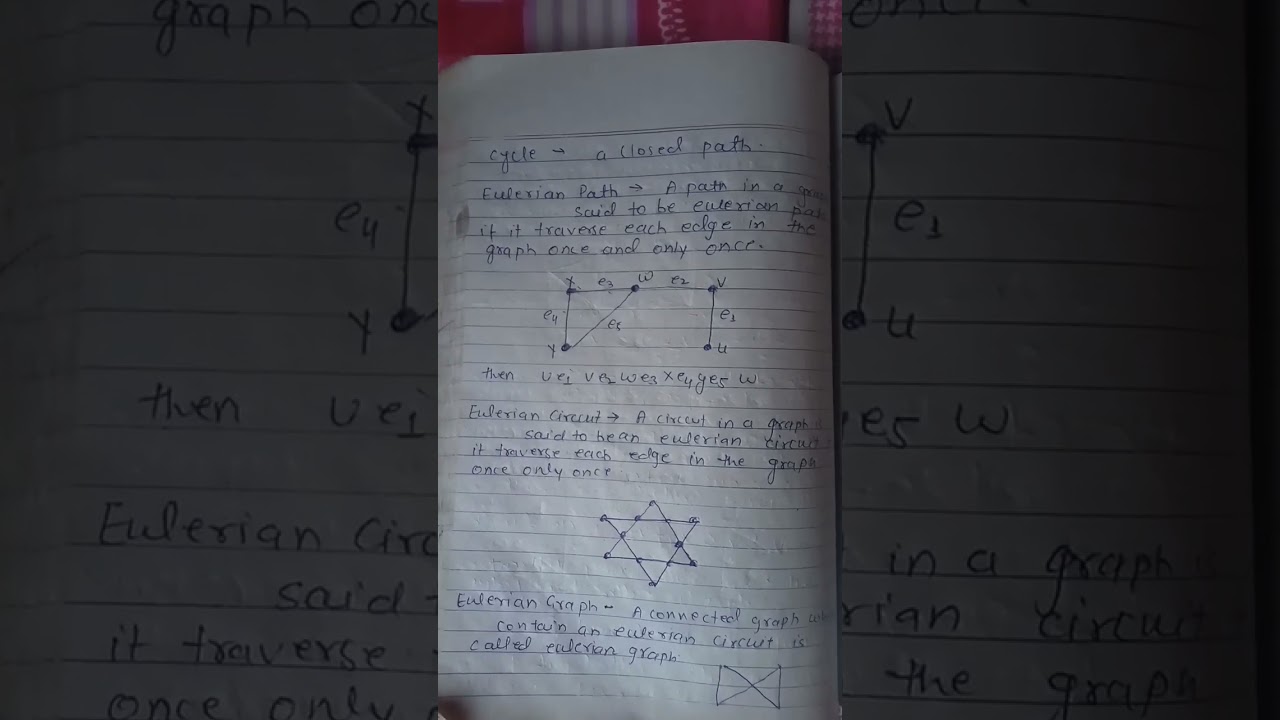 cycle → a closed path.
Eulerian Path → A path in a
said to be eulerian
if it traverse each edge in the
graph once and only once.
X e3 W e2 V
e4 e5 e1
Y u
then ue1 ve2 we3 xe4 ye5 w
Eulerian Circuit → A circut in a graph
said to be an eulerian circuit
it traverse each edge in the graph
once only once
Eulerian Graph - A connected graph
contain an eulerian circuit is
called eulerian graph.